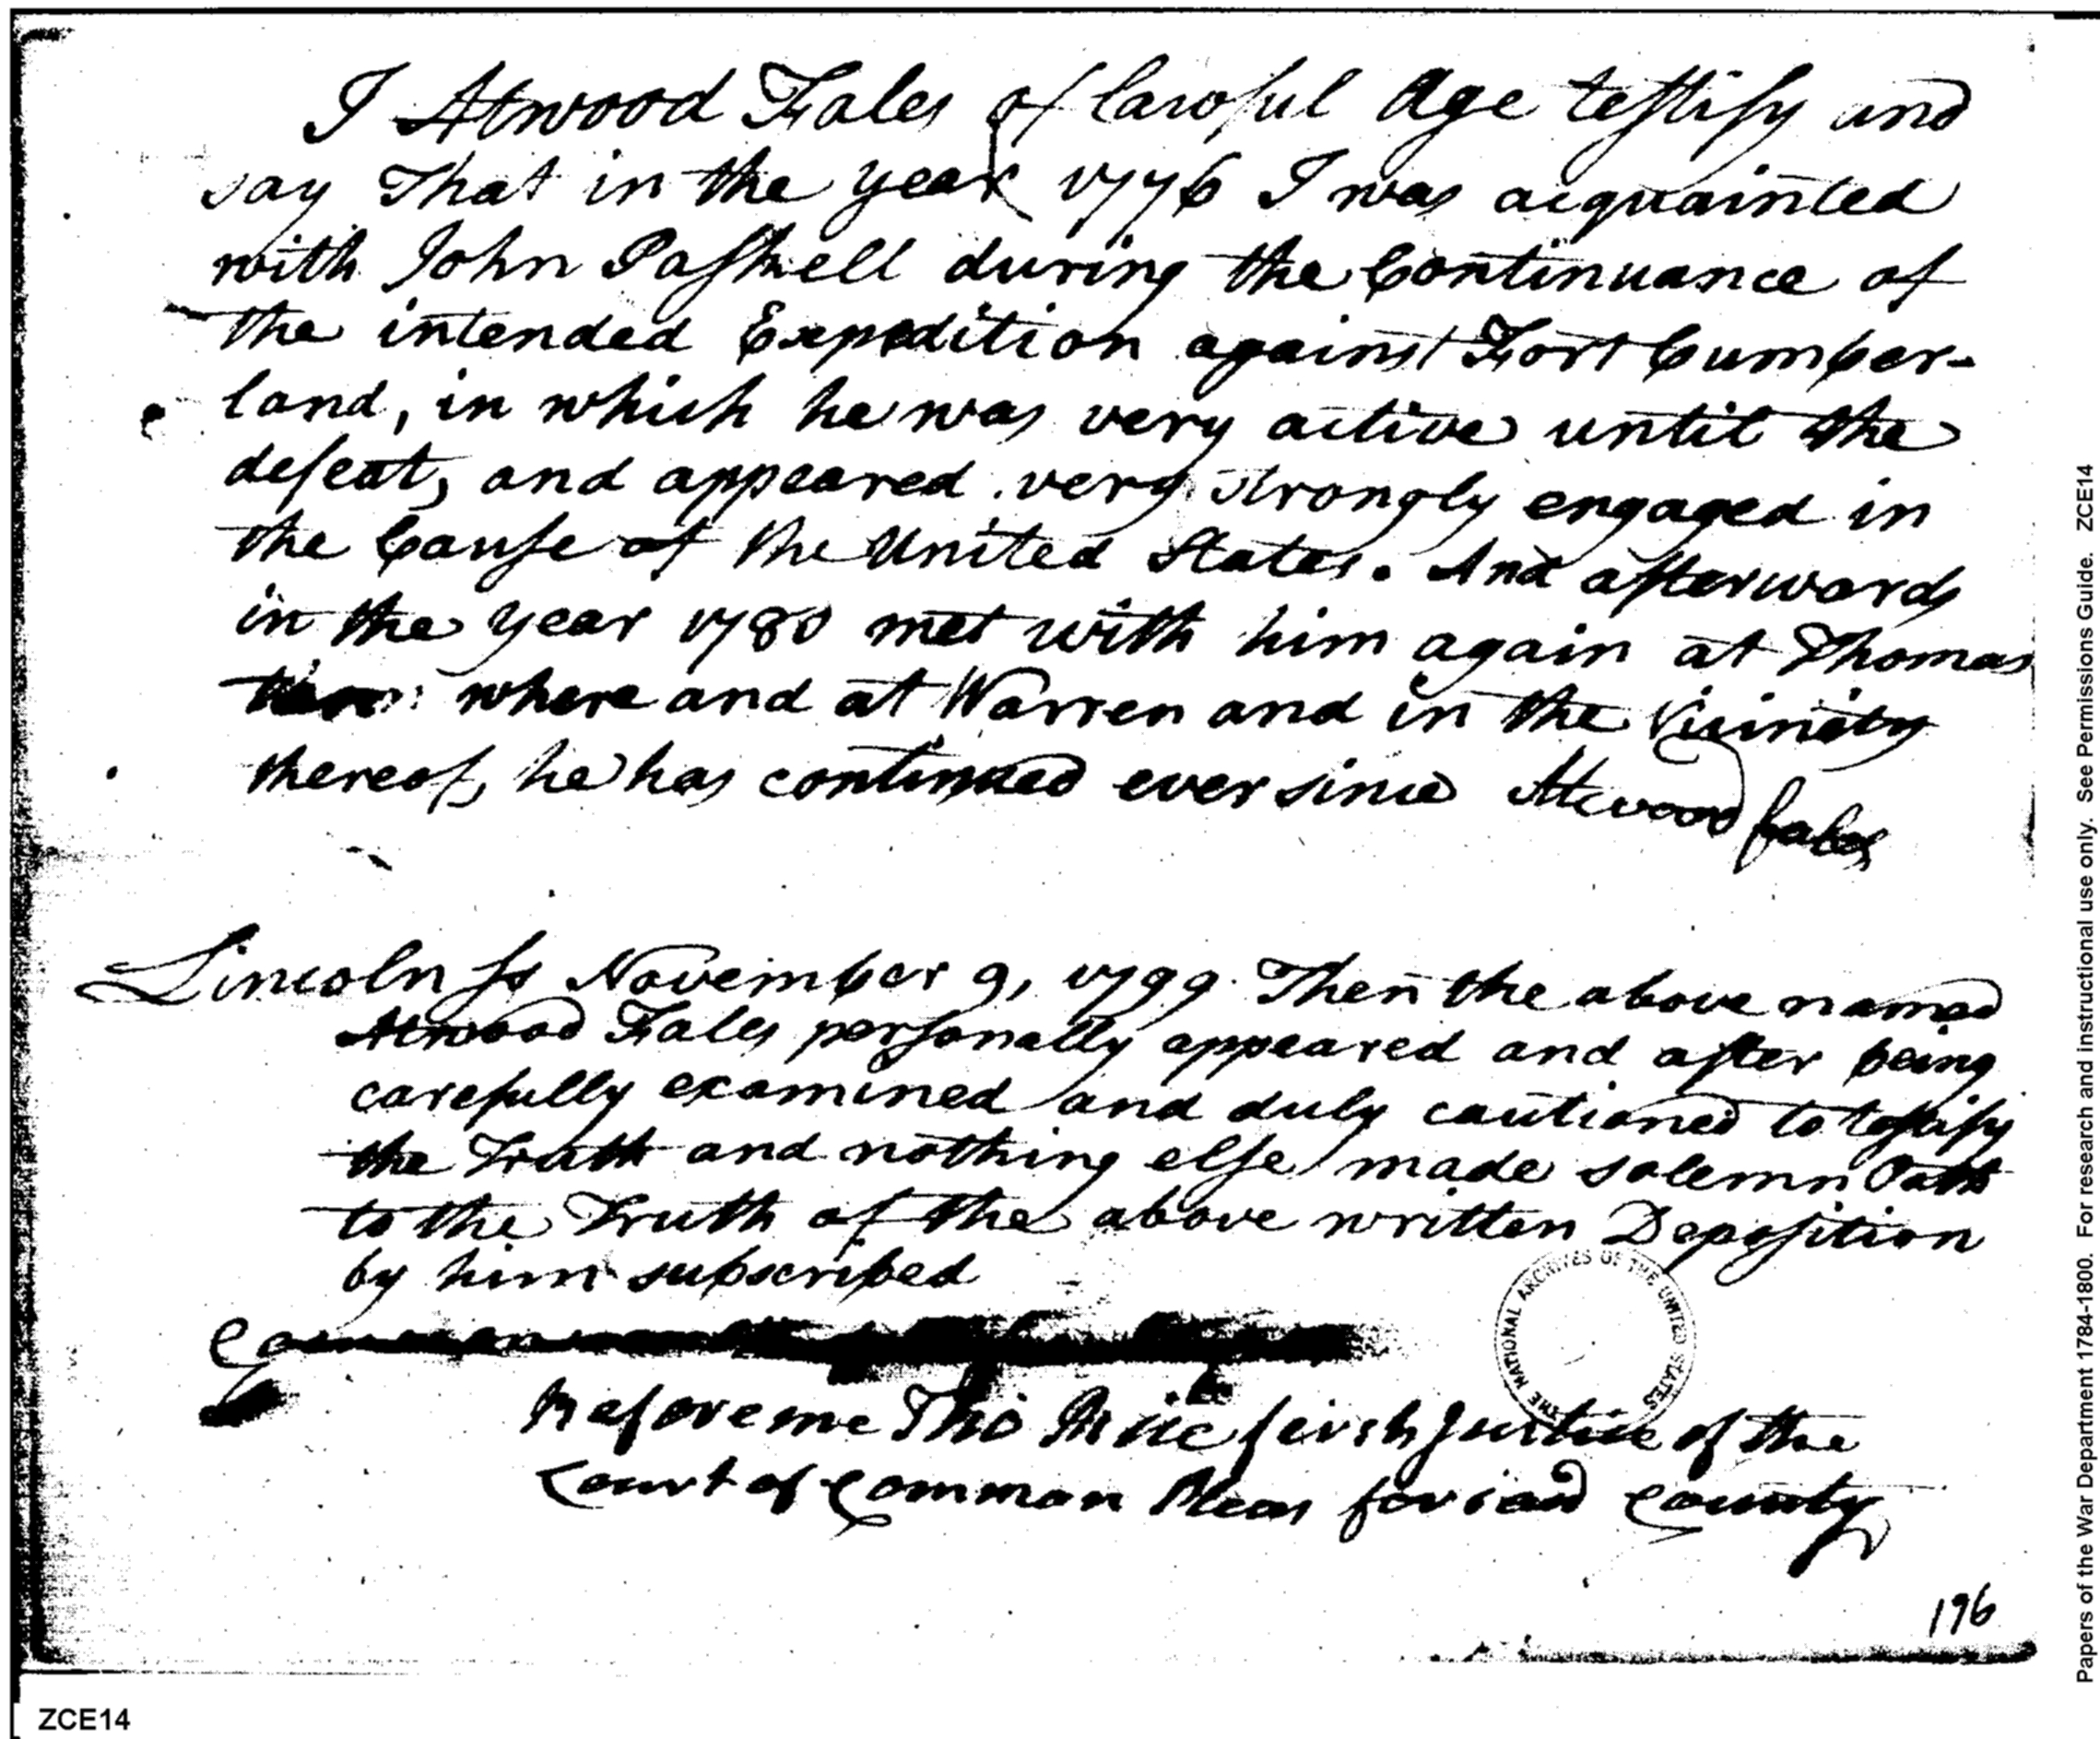 I Atwood Fales of lawful Age testify and
say That in the year 1776 I was acquainted
with John Paskell during the Continuance of
the intended Expedition against Fort Cumber-
land, in which he was very active until the
defeat, and appeared very strongly engaged in
the Cause of the United States. And afterwards
in the year 1780 met with him again at Thomas
ton: where and at Warren and in the Vicinity
thereof, he has continued ever since Atwood Fales
Lincoln ss November 9, 1799. Then the above named
Atwood Fales personally appeared and after being
carefully examined and duly cautioned to testify
the Truth and nothing else made solemn Oath
to the Truth of the above written Deposition
by him subscribed
Before me Tho Rice first Justice of the
Court of Common Pleas for said County
THE NATIONAL ARCHIVES OF THE UNITED STATES
196
ZCE14
Papers of the War Department 1784-1800. For research and instructional use only. See Permissions Guide. ZCE14